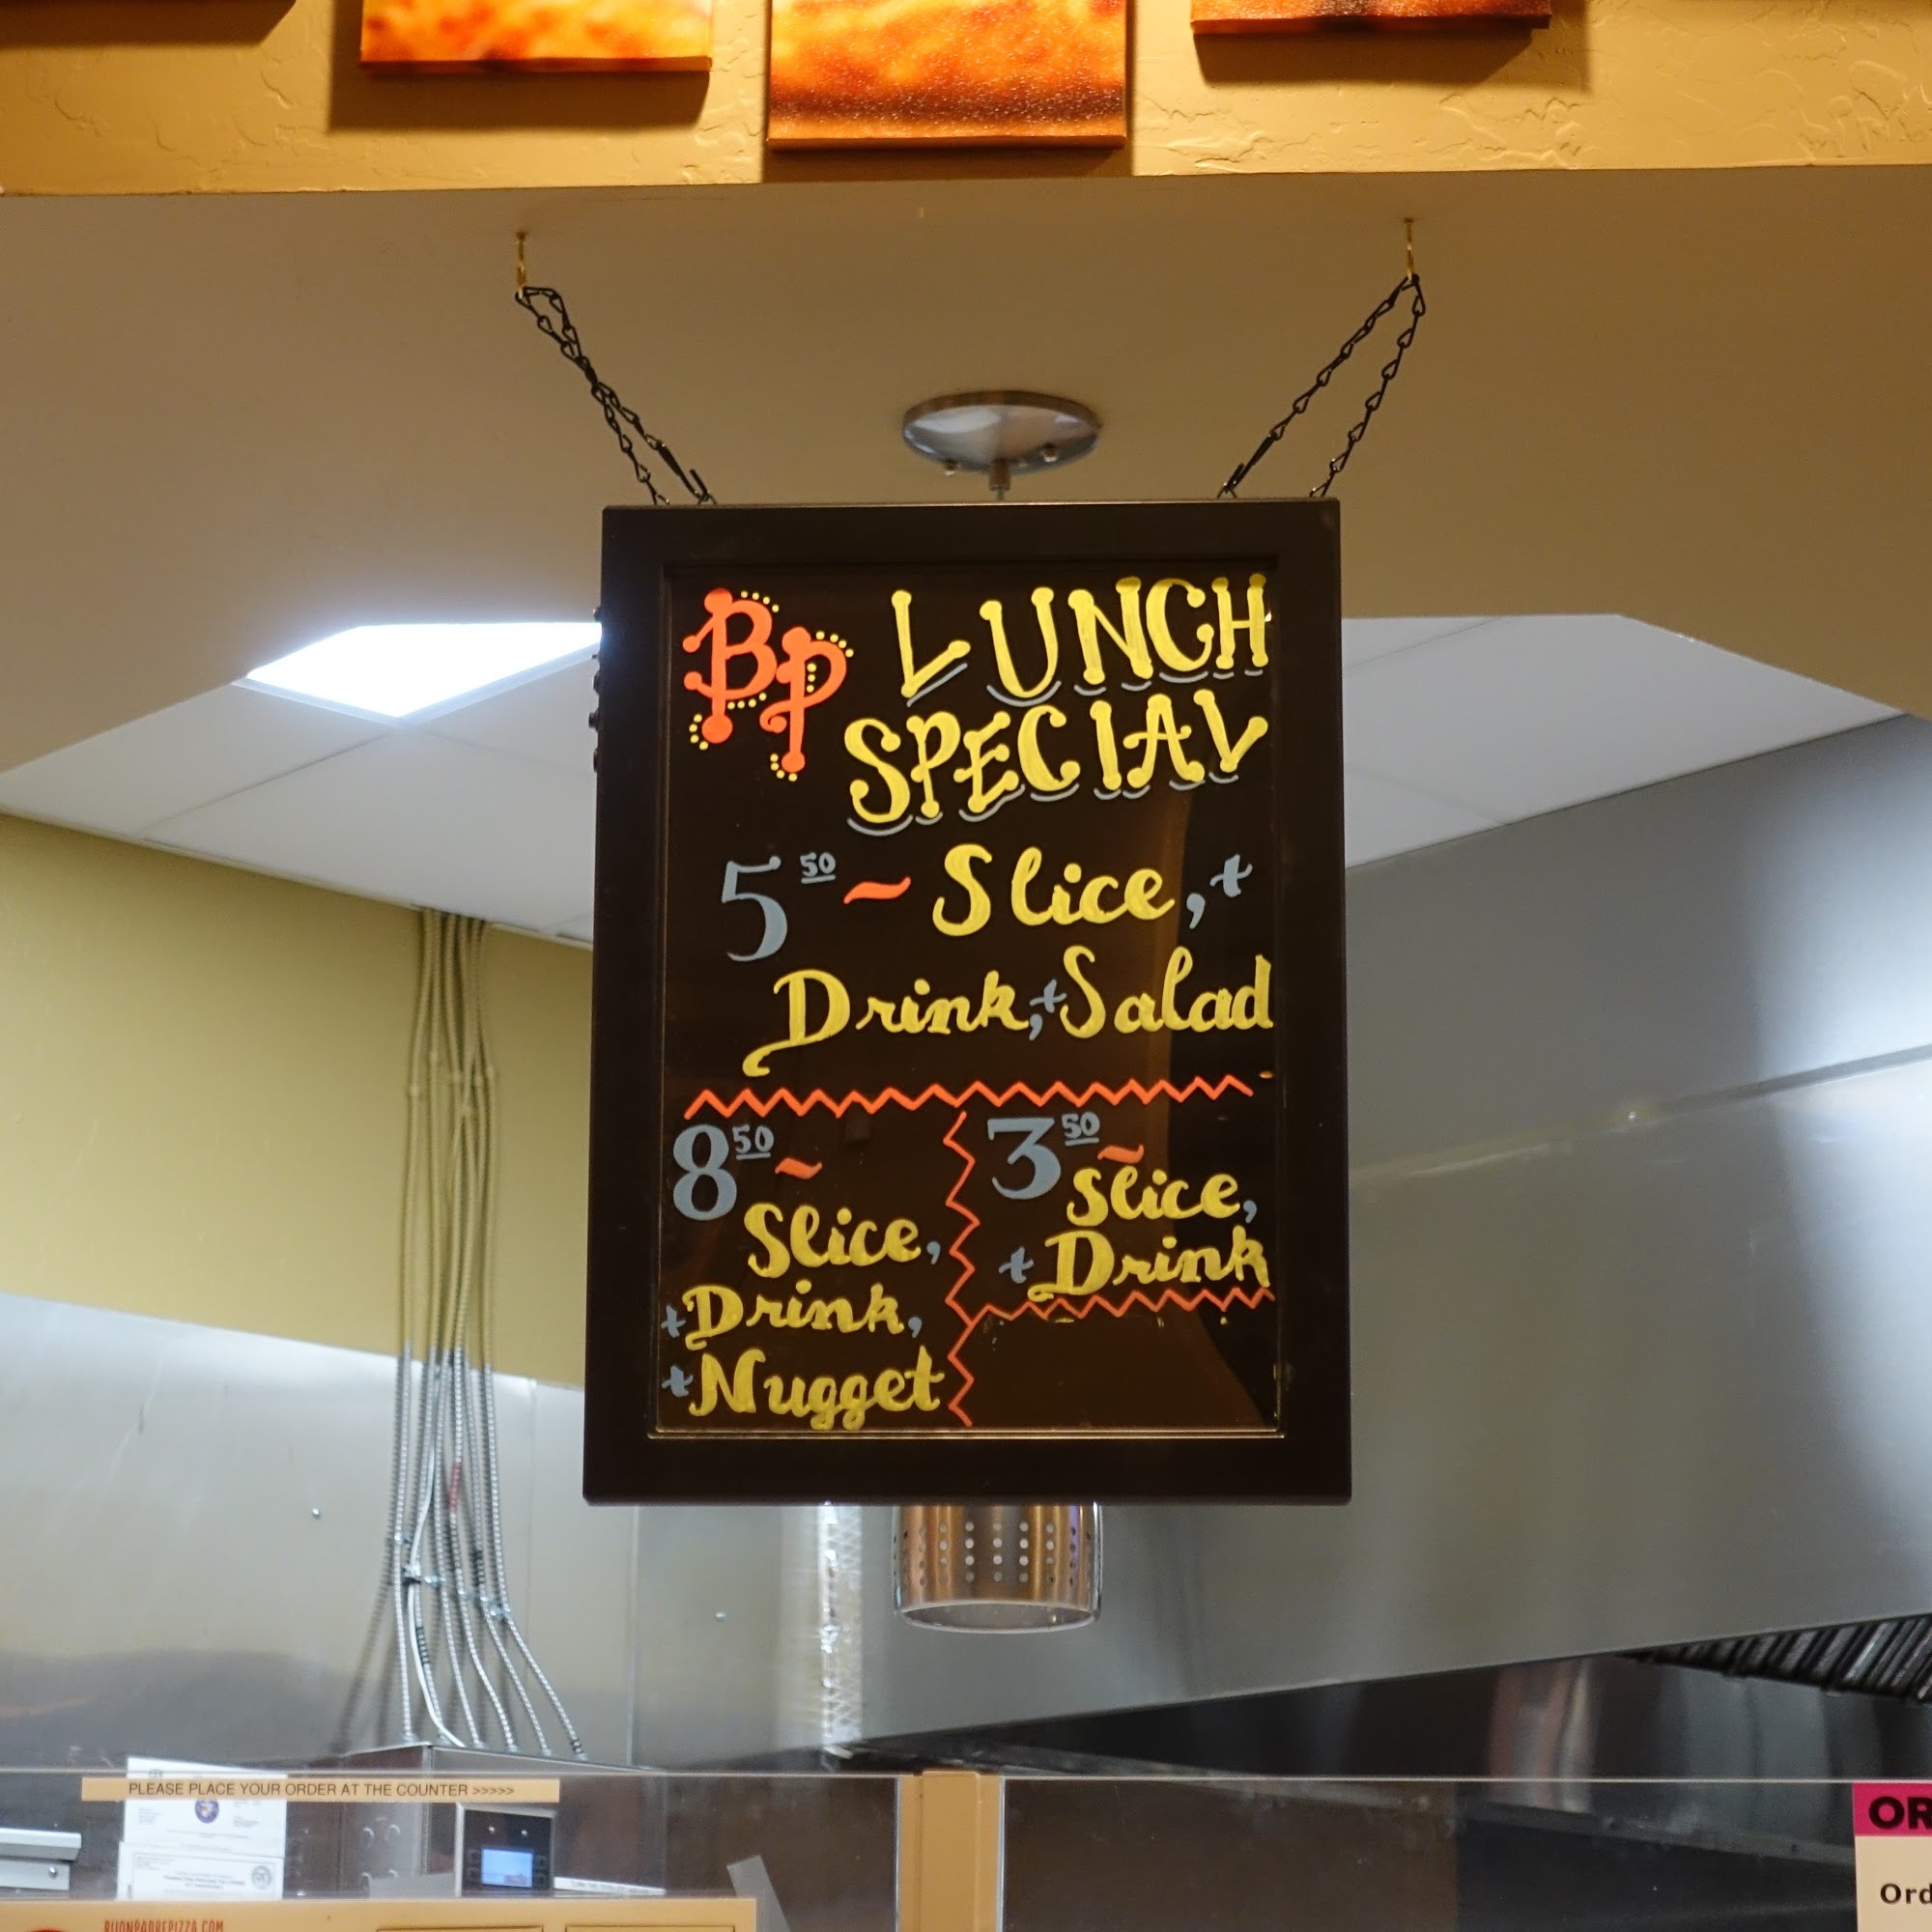 BP LUNCH
SPECIAL
5 50 ~ Slice, +
Drink, + Salad
8 50 ~
Slice,
+ Drink,
+ Nugget
3 50 ~
Slice,
+ Drink
PLEASE PLACE YOUR ORDER AT THE COUNTER >>>>>
OR
Ord
BUONPADREPIZZA.COM